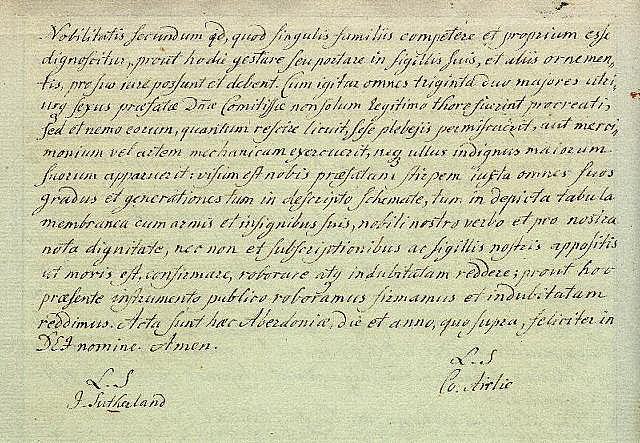 Nobilitatis secundum qd, quod singulis familiis competere et proprium esse
dignoscitur, prout hodie gestare seu portare in sigillis suis, et aliis ornemen,
tis, pro suo iure possunt et debent. Cum igitur omnes triginta duo majores utri,
usq sexus præfatæ Dnæ Comitissæ non solum legitimo thore fuerint procreati,
sed et nemo eorum, quantum rescire licuit, sese plebejis permiscuerit, aut merci,
monium vel artem mechanicam exercuerit, neq ullus indignus maiorum
suorum apparuerit: visum est nobis præfatam stirpem iuxta omnes suos
gradus et generationes tum in descripto schemate, tum in depicta tabula
membranea cum armis et insignibus suis, nobili nostro verbo et pro nostra
nota dignitate, nec non et subscriptionibus ac sigillis nostris appositis
ut moris est, confirmare, roborare atq indubitatam reddere; prout hoc
præsente instrumento publico roboramus firmamus et indubitatam
reddimus. Acta sunt hæc Aberdoniæ, die et anno, quo supra, feliciter in
DEI nomine. Amen.
L. S
L. S
J. Sutherland
Co: Airlie